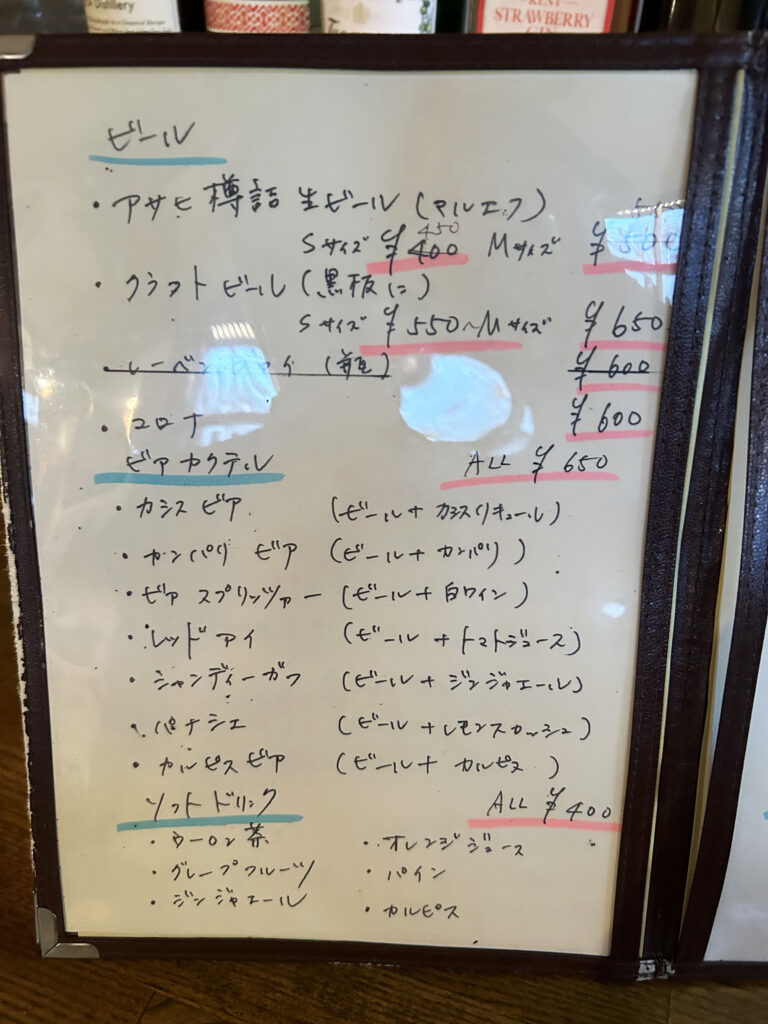 Distillery
STRAWBERRY
ビール
・アサヒ 樽詰 生ビール (マルエフ)
450
Sサイズ ¥400 Mサイズ ¥
・クラフト ビール (黒板に)
Sサイズ ¥550~Mサイズ ¥650
¥600
・コロナ ¥600
ビアカクテル ALL ¥650
・カシス ビア (ビール+カシスリキュール)
・カンパリ ビア (ビール+カンパリ)
・ビア スプリッツァー (ビール+白ワイン)
・レッド アイ (ビール+トマトジュース)
・シャンディーガフ (ビール+ジンジャエール)
・パナシェ (ビール+レモンスカッシュ)
・カルピスビア (ビール+カルピス)
ソフトドリンク ALL ¥400
・ウーロン茶 ・オレンジジュース
・グレープフルーツ ・パイン
・ジンジャエール ・カルピス